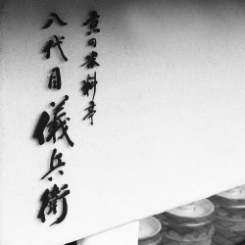 京の米料亭
八代目儀兵衛